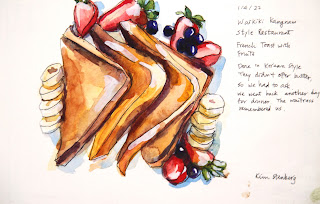 Waikiki Kangnam
Style Restaurant
French Toast with
Fruits
Done in Korean Style
They didn't offer butter,
so we had to ask
We went back another day
for dinner. The waitress
remembered us.
Kim